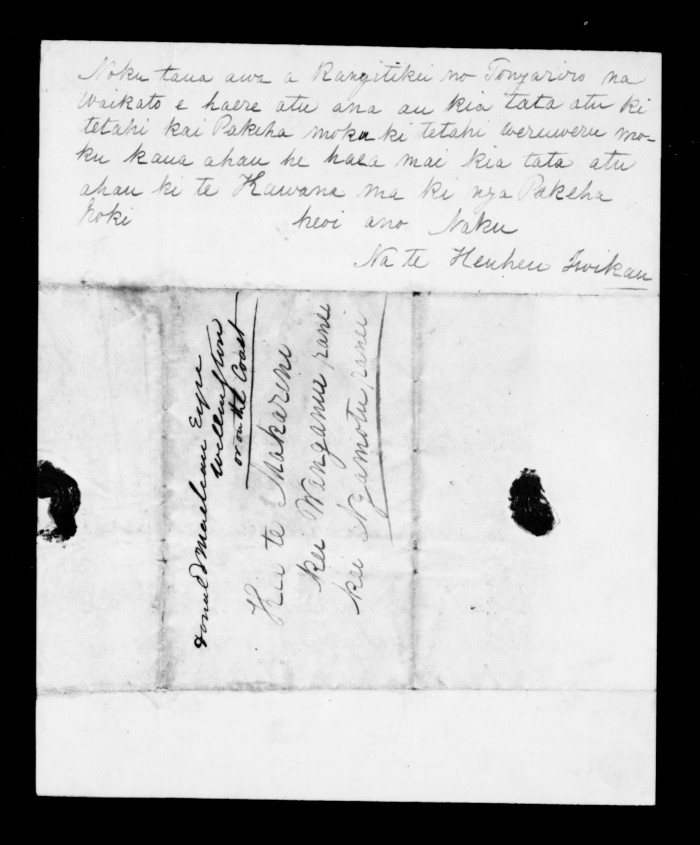 Noku taua awa a Rangitikei no Tongariro na
Waikato e haere atu ana au kia tata atu ki
tetahi kai Pakeha moku ki tetahi weruweru mo-
ku kaua ahau he haea mai kia tata atu
ahau ki te Kawana ma ki nga Pakeha
hoki heoi ano Naku
Na te Heuheu Iwikau
Donald Maclean Esqr
Wellington
or on the Coast
Kia te Makarini
kei Wanganui ranei
kei Ngamotu ranei